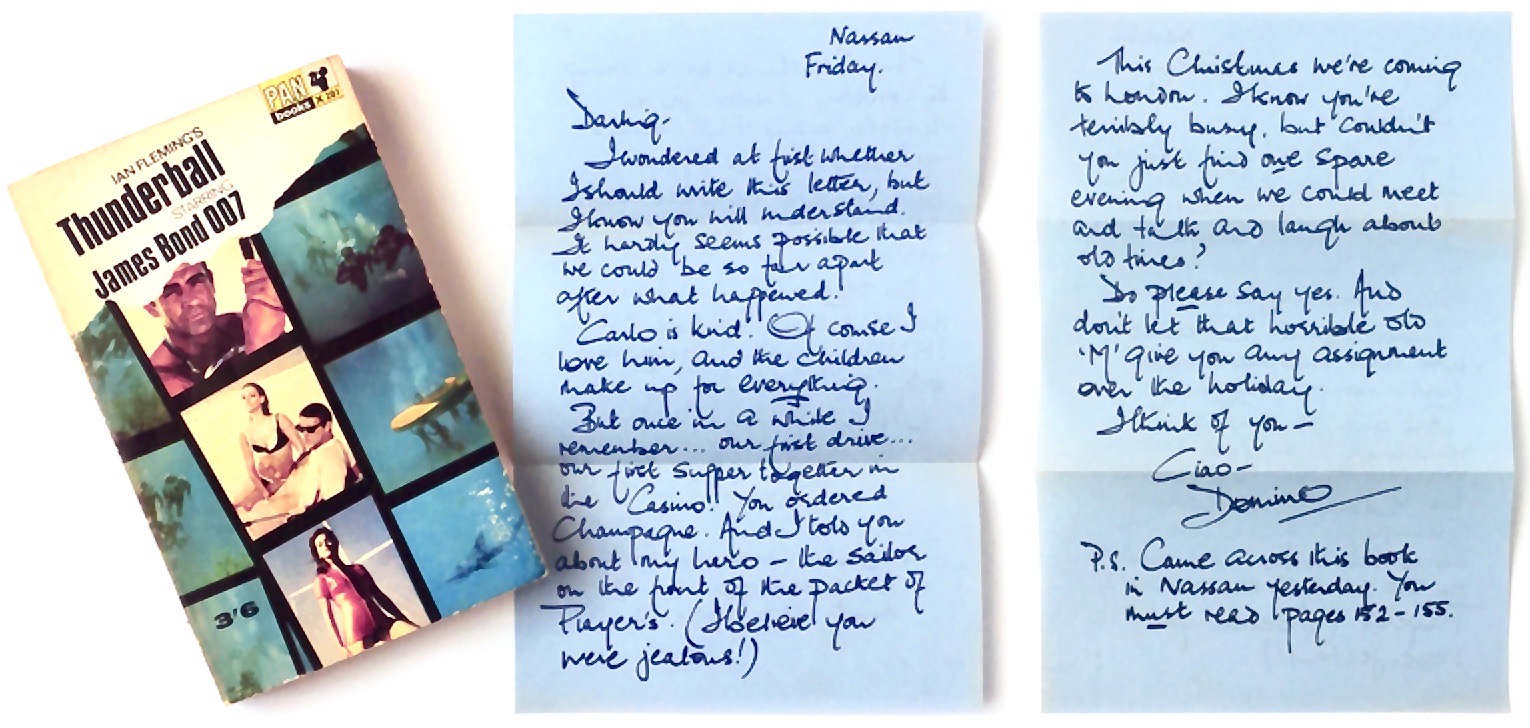 PAN
books X 201
IAN FLEMING'S
Thunderball
STARRING
James Bond 007
3'6
Nassau
Friday.
Darling-
I wondered at first whether
I should write this letter, but
I know you will understand.
It hardly seems possible that
we could be so far apart
after what happened.
Carlo is kind. Of course I
love him, and the children
make up for everything.
But once in a while I
remember... our first drive...
our first supper together in
the Casino. You ordered
Champagne. And I told you
about my hero - the sailor
on the front of the packet of
Player's. (I believe you
were jealous!)
This Christmas we're coming
to London. I know you're
terribly busy, but couldn't
you just find one spare
evening when we could meet
and talk and laugh about
old times?
Do please say yes. And
don't let that horrible old
'M' give you any assignment
over the holiday.
I think of you -
Ciao -
Domino
P.S. Came across this book
in Nassau yesterday. You
must read pages 152-155.